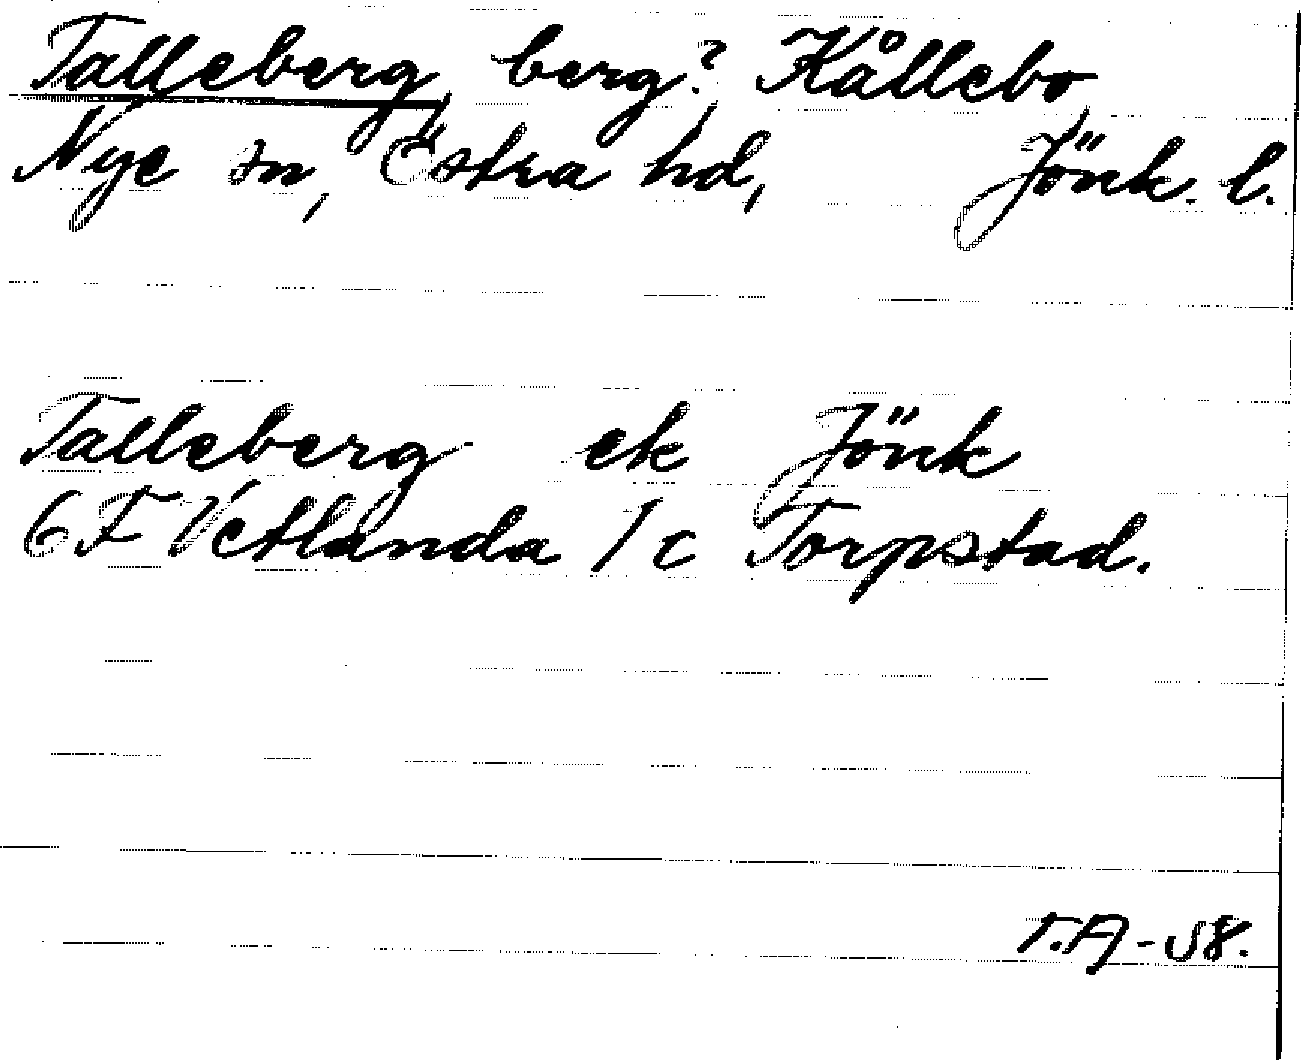 Talleberg, berg? Kållebo,
Nye sn, Östra hd, Jönk. l.
Talleberg ek Jönk
6F Vetlanda 1c Torpstad.
T.A-58.